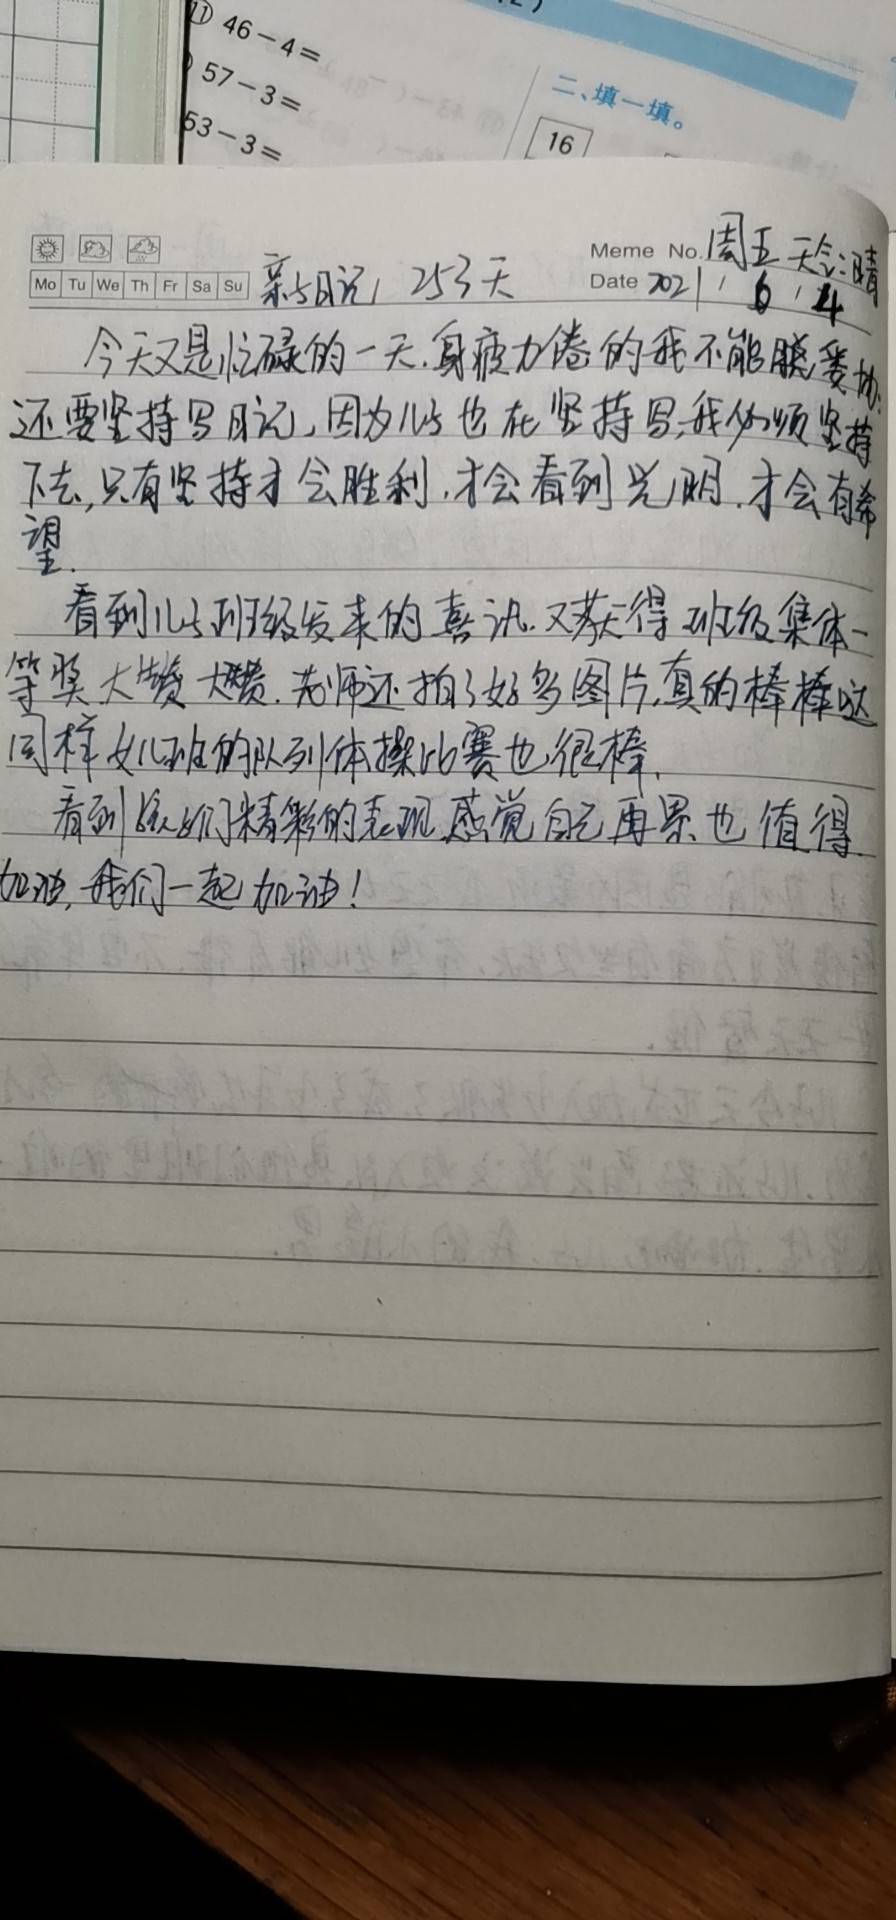 ⑪ 46-4=
57-3=
53-3=
二、填一填。
16
Meme No. 周五 天气:晴
Mo Tu We Th Fr Sa Su
亲子日记 253天
Date 2021 . 6 . 4
今天又是忙碌的一天.身疲力倦的我不能脱妥协.
还要坚持写日记,因为儿子也在坚持写,我必须坚持
下去,只有坚持才会胜利.才会看到光明.才会有希
望.
看到儿子班级发来的喜讯.又获得班级集体一
等奖大赞大赞.老师还拍了好多图片,真的棒棒哒
同样女儿班的队列体操比赛也很棒.
看到孩子们精彩的表现,感觉自己再累也值得.
加油,我们一起加油!